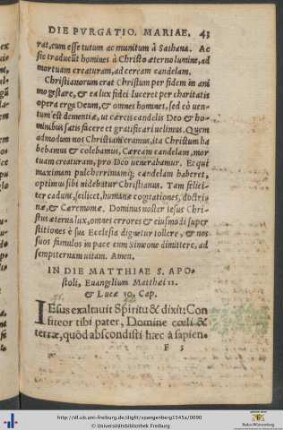 DIE PVRGATIO. MARIAE. 43
rat, cum esse tutum ac munitum à Sathana. Ac
sic traducūt homines à Christo æterno lumine, ad
mortuam creaturam, ad ceream candelam.
Christianorum erat Christum per fidem in ani
mo gestare, & ex luce fidei lucere per charitatis
opera erga Deum, & omnes homines, sed eò uen-
tum est dementiæ, ut cæreis candelis Deo & ho-
minibus satis facere et gratificari uelimus. Quem
admodum nos Christiani eramus, ita Christum ha
bebamus & colebamus, Cæream candelam, mor-
tuam creaturam, pro Deo uenerabamur. Et qui
maximam pulcherrimamq; candelam haberet,
optimus sibi uidebatur Christianus. Tam
cadunt, scilicet, humanæ cogitationes, doctri
næ, & Cæremoniæ. Dominus noster Iesus Christ
us æterna lux, omnes errores & eiusmodi super
stitiones è sua Ecclesia dignetur tollere, & nos
suos famulos in pace cum Simeone dimittere, ad
sempiternam uitam. Amen.
IN DIE MATTHIAE S. APO-
stoli, Euangelium Matthæi 11.
& Lucæ 10. Cap.
IEsus exaltauit Spiritu & dixit: Con
fiteor tibi pater, Domine cœli &
terræ, quòd abscondisti hæc à sapien-
F 3
http://dl.ub.uni-freiburg.de/diglit/spangenberg1545a/0090
© Universitätsbibliothek Freiburg